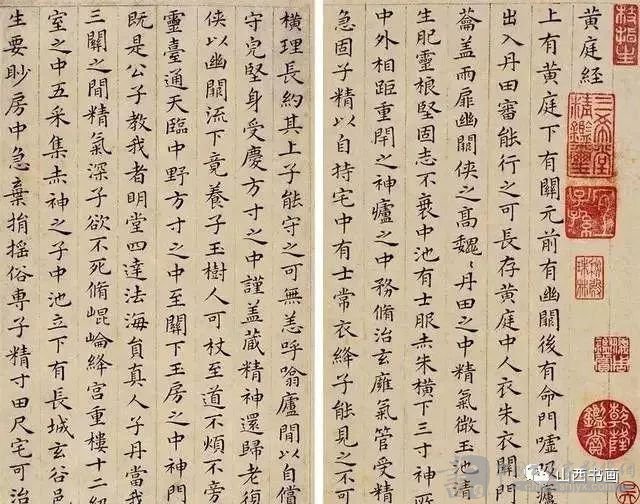 黄庭經
上有黄庭下有關元前有幽闕後有命門嘘吸廬
出入丹田審能行之可長存黄庭中人衣朱衣關門
籥盖兩扉幽闕俠之髙魏〻丹田之中精氣微玉池清
生肥靈根堅固志不衰中池有士服赤朱横下三寸神所
中外相距重閇之神廬之中務脩治玄癕氣管受精
急固子精以自持宅中有士常衣絳子能見之不可
横理長約其上子能守之可無恙呼噏廬閒以自償
守皃堅身受慶方寸之中謹盖蔵精神還歸老復
俠以幽闕流下竟養子玉樹人可杖至道不煩不旁
靈臺通天臨中野方寸之中至關下玉房之中神門
既是公子教我者明堂四達法海員真人子丹當我
三關之閒精氣深子欲不死脩崐崘絳宫重樓十二級
室之中五采集赤神之子中池立下有長城玄谷邑
生要眇房中急棄捐摇俗專子精寸田尺宅可治
三希堂精鑑璽
宜子孫
乾隆鑑賞
山西书画